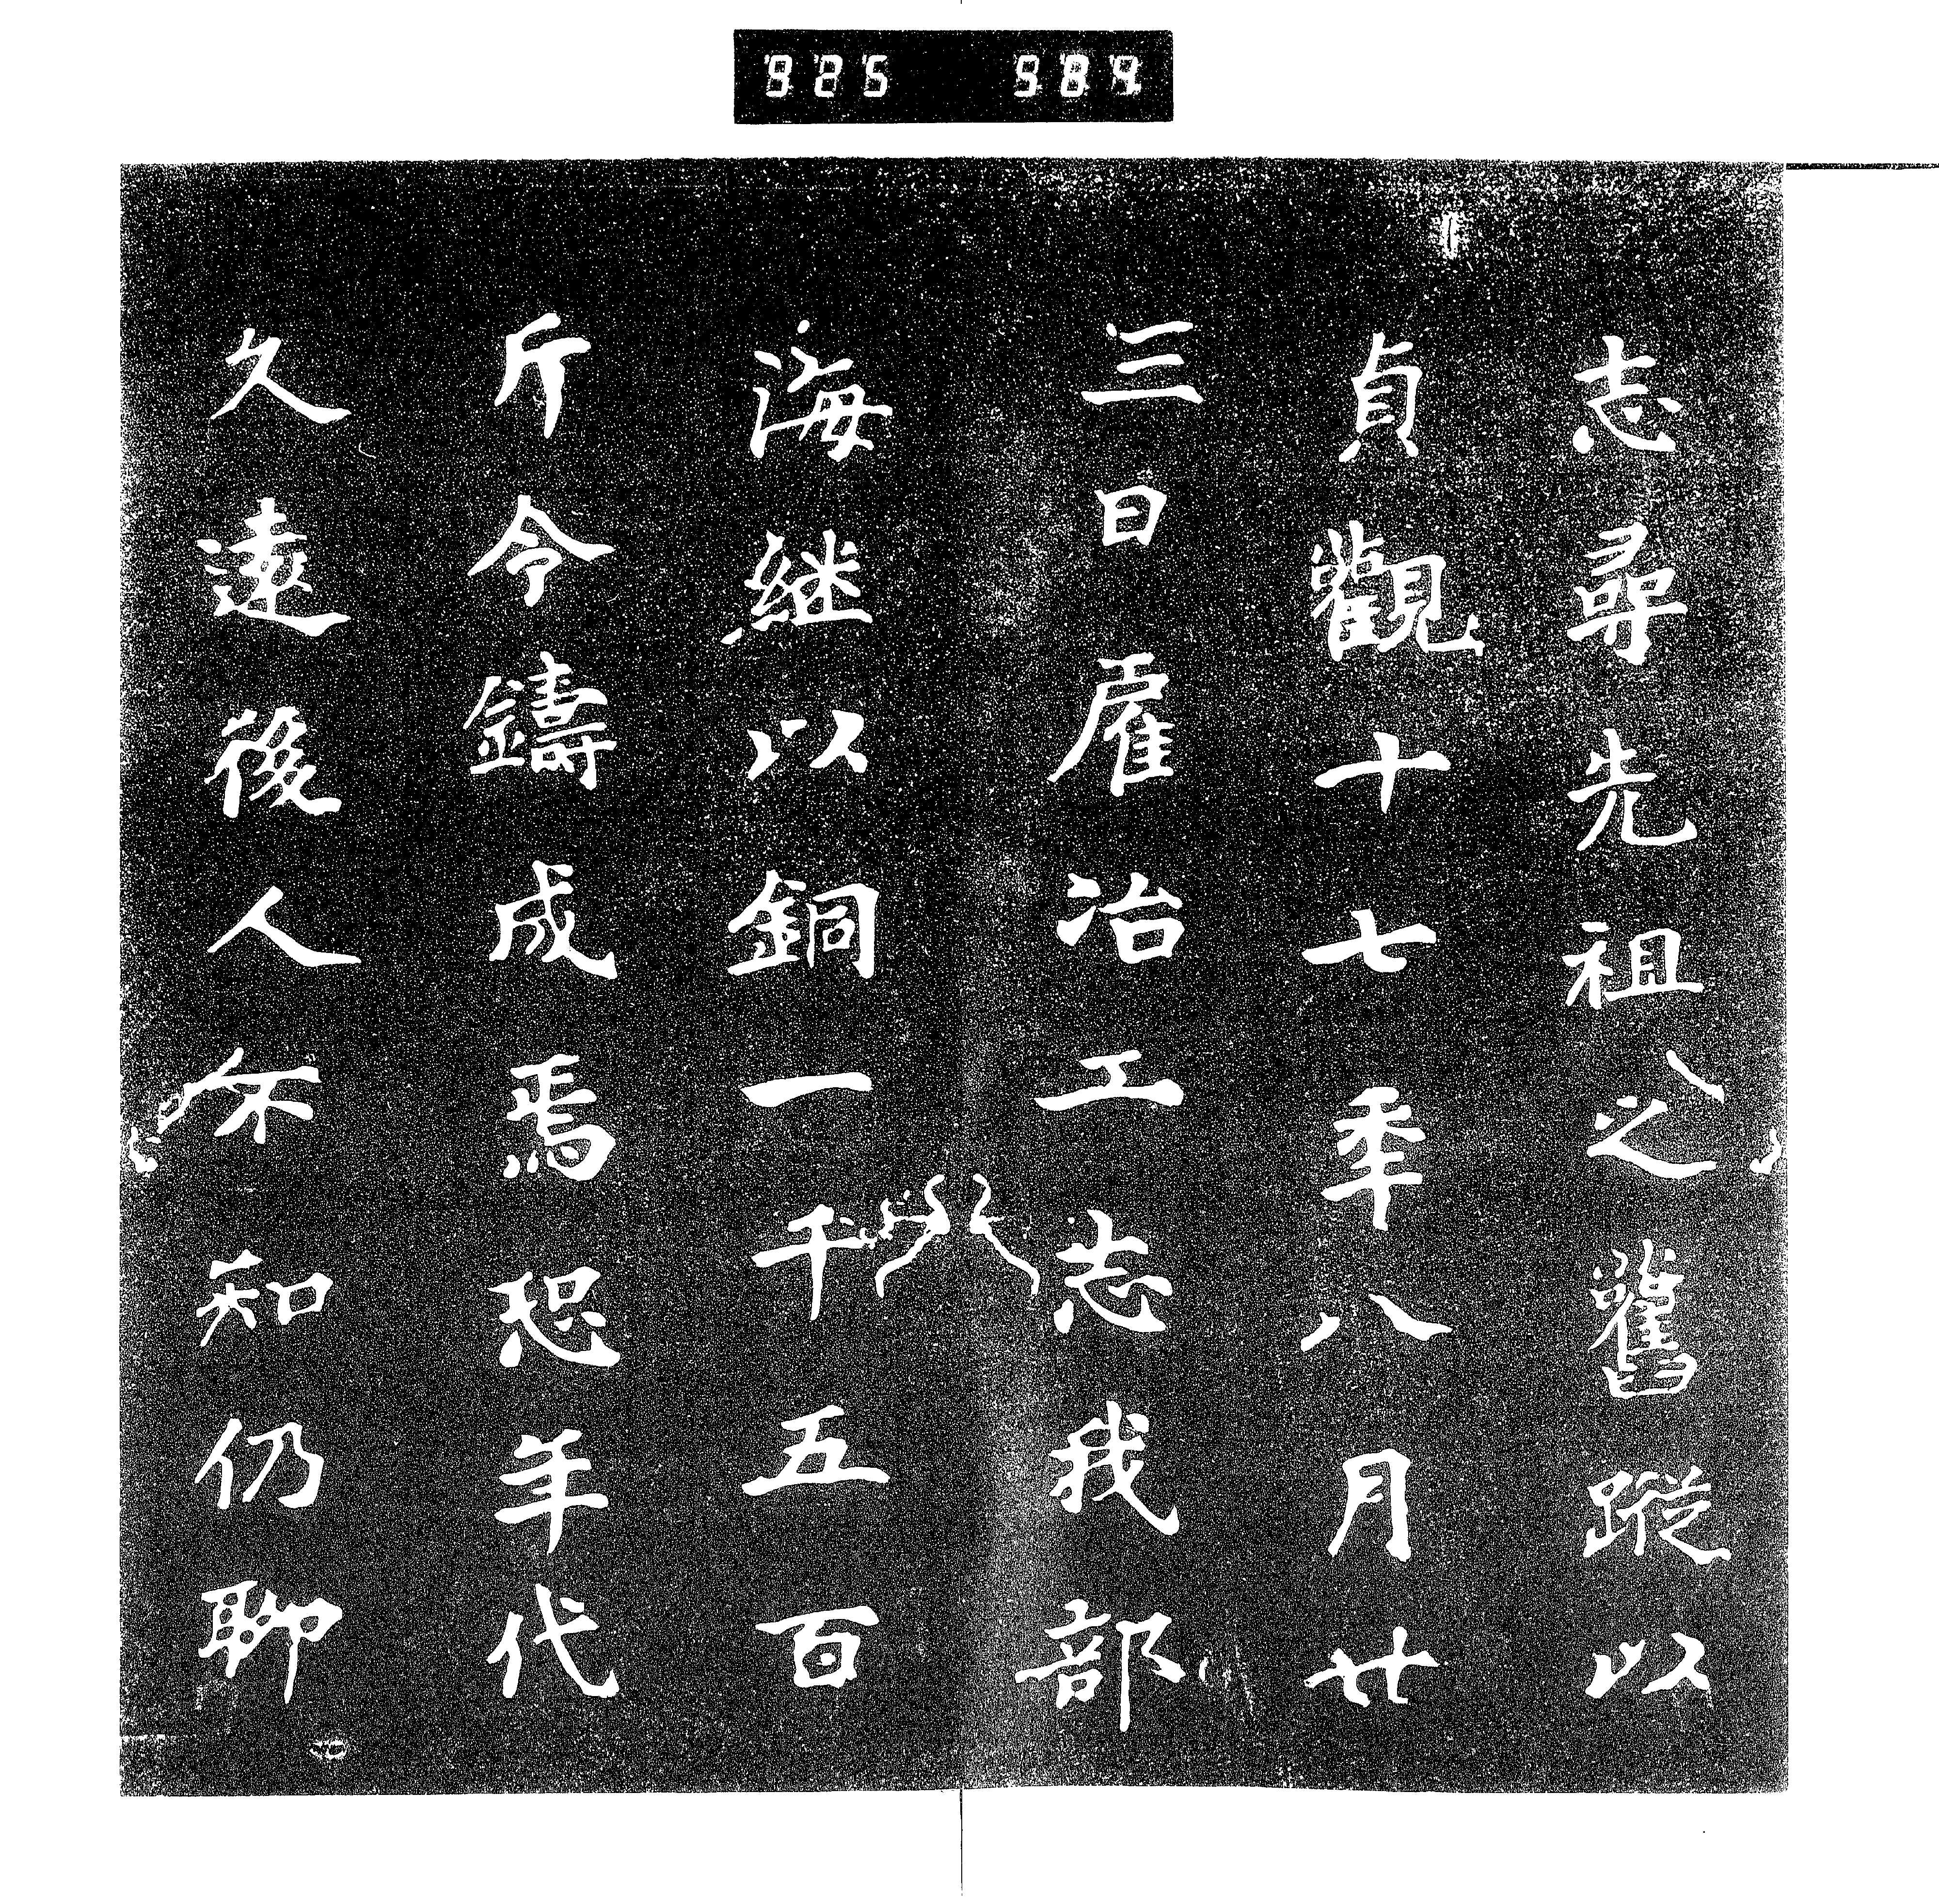 志尋先祖之舊蹤以
貞觀十七秊八月廿
三日雇冶工志我部
海継以銅一千五百
斤令鑄成焉恐年代
久遠後人不知仍聊